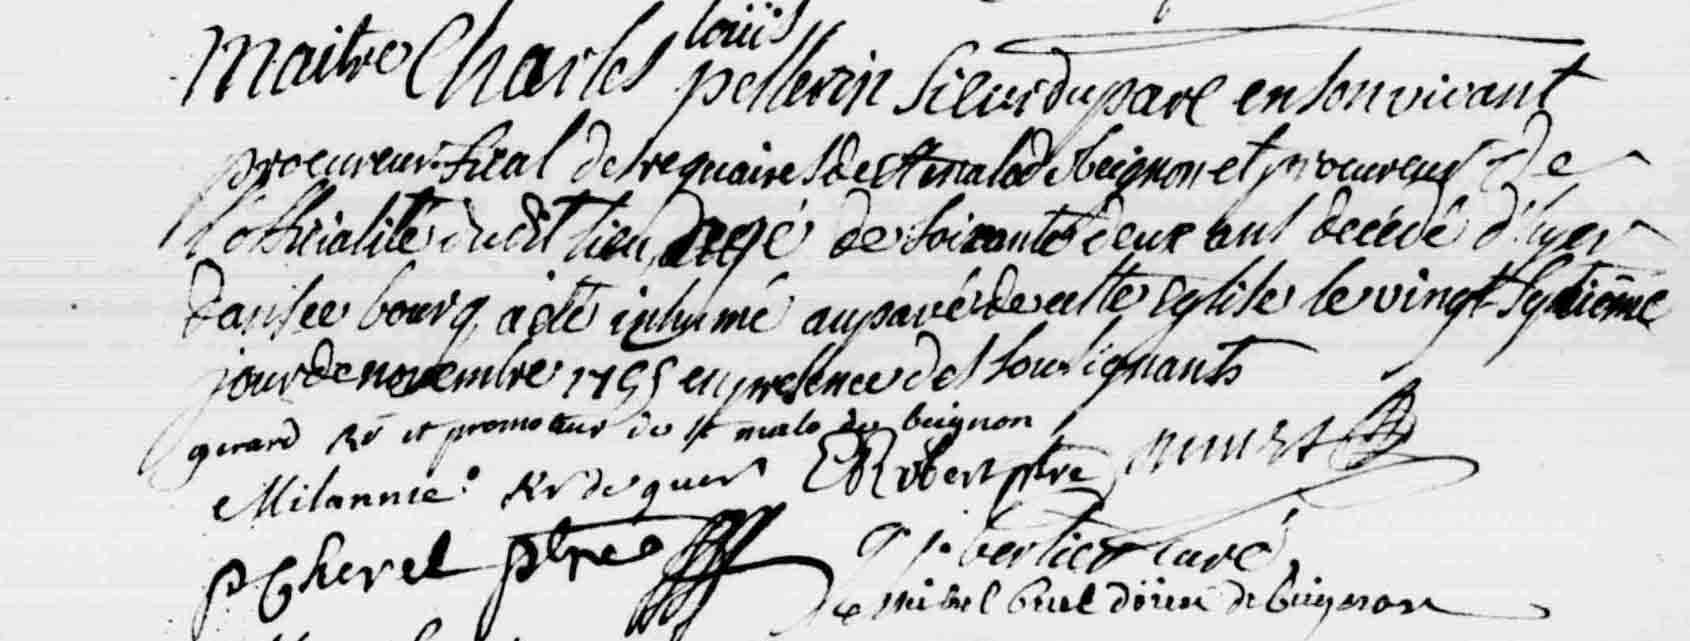 loüis
Maitre Charles pellerin Sieur du parc en son vivant
procureur fiscal des requaires de St malo de beignon et procureur de
l'officialité dudit lieu agé de soixante deux ans decédé d'hyer
dans ce bourg a été inhumé au pavé de cette eglise le vingt septiéme
jour de novembre 1755 en presence des soussignants
gerard Rr et promoteur de St malo de beignon
Milannie Rr de guer E Robert ptre
p Cherel ptre berthier curé
de beignon